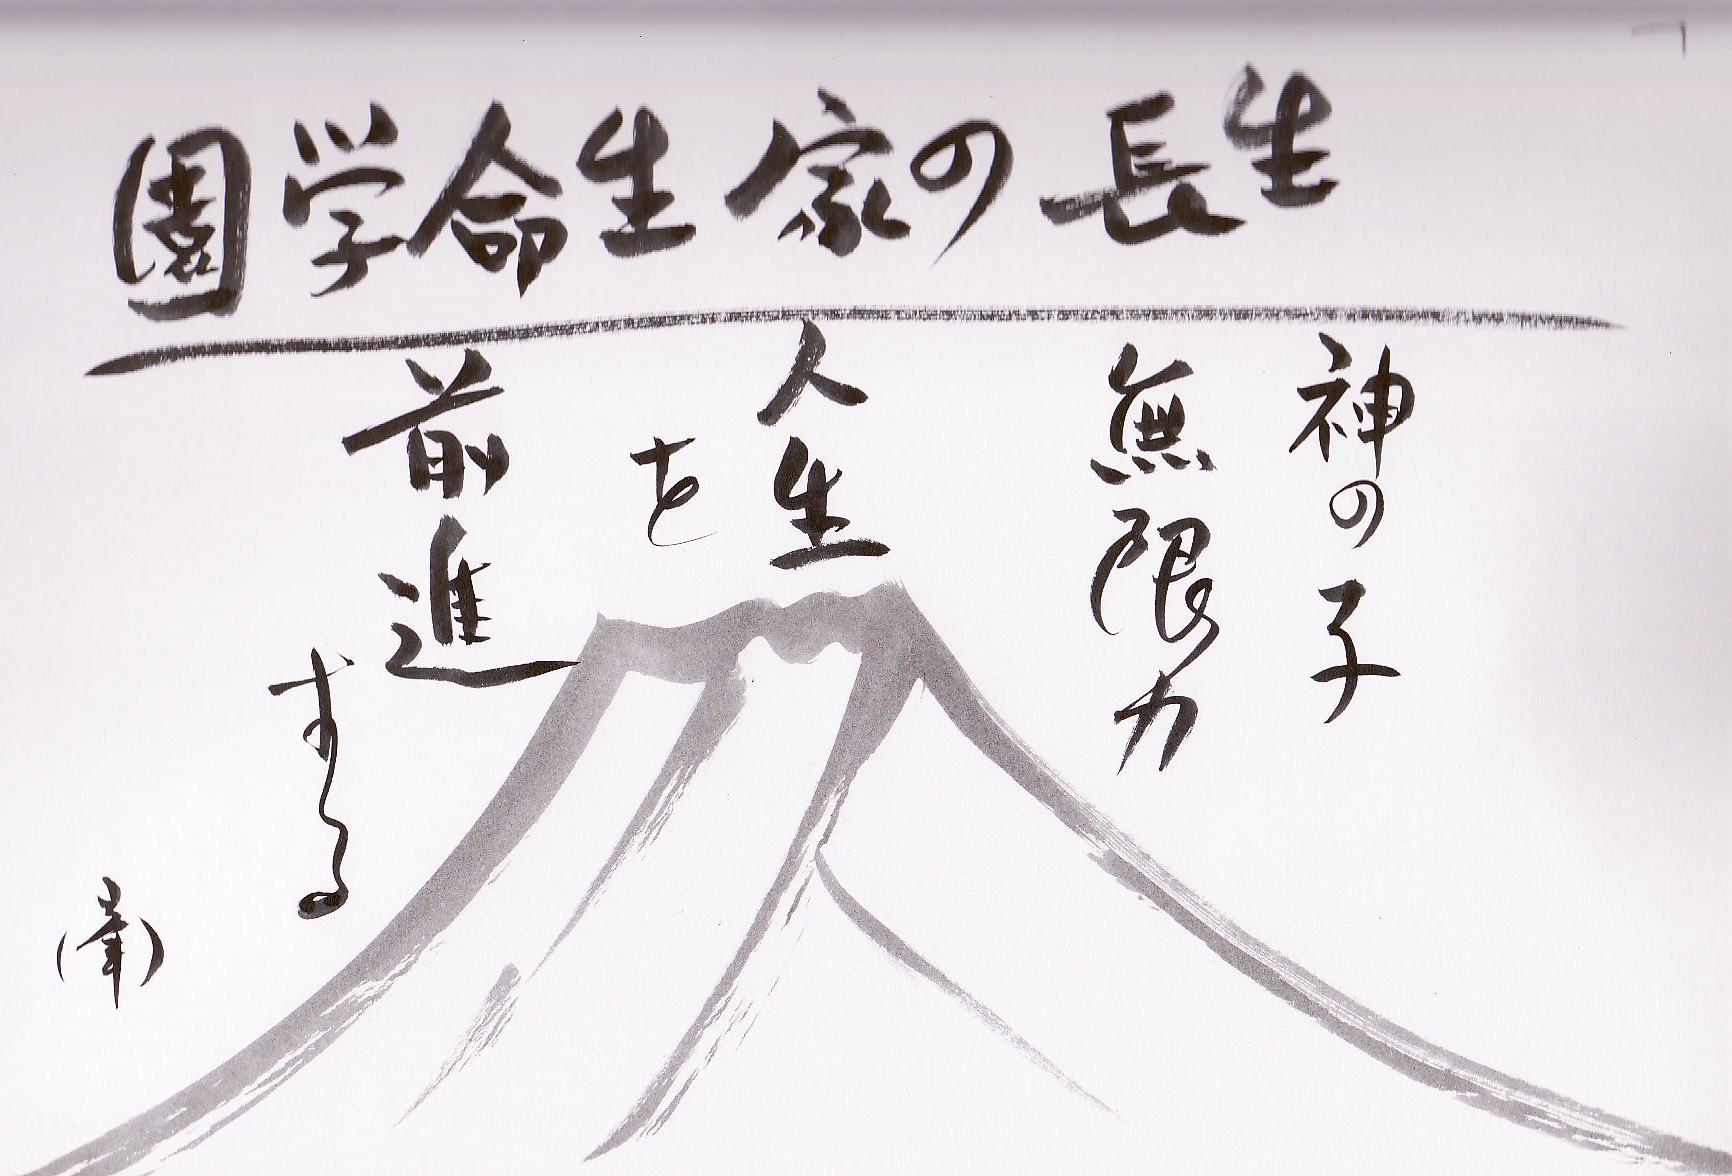 生長の家生命学園
神の子
無限力
人生
を
前進
する